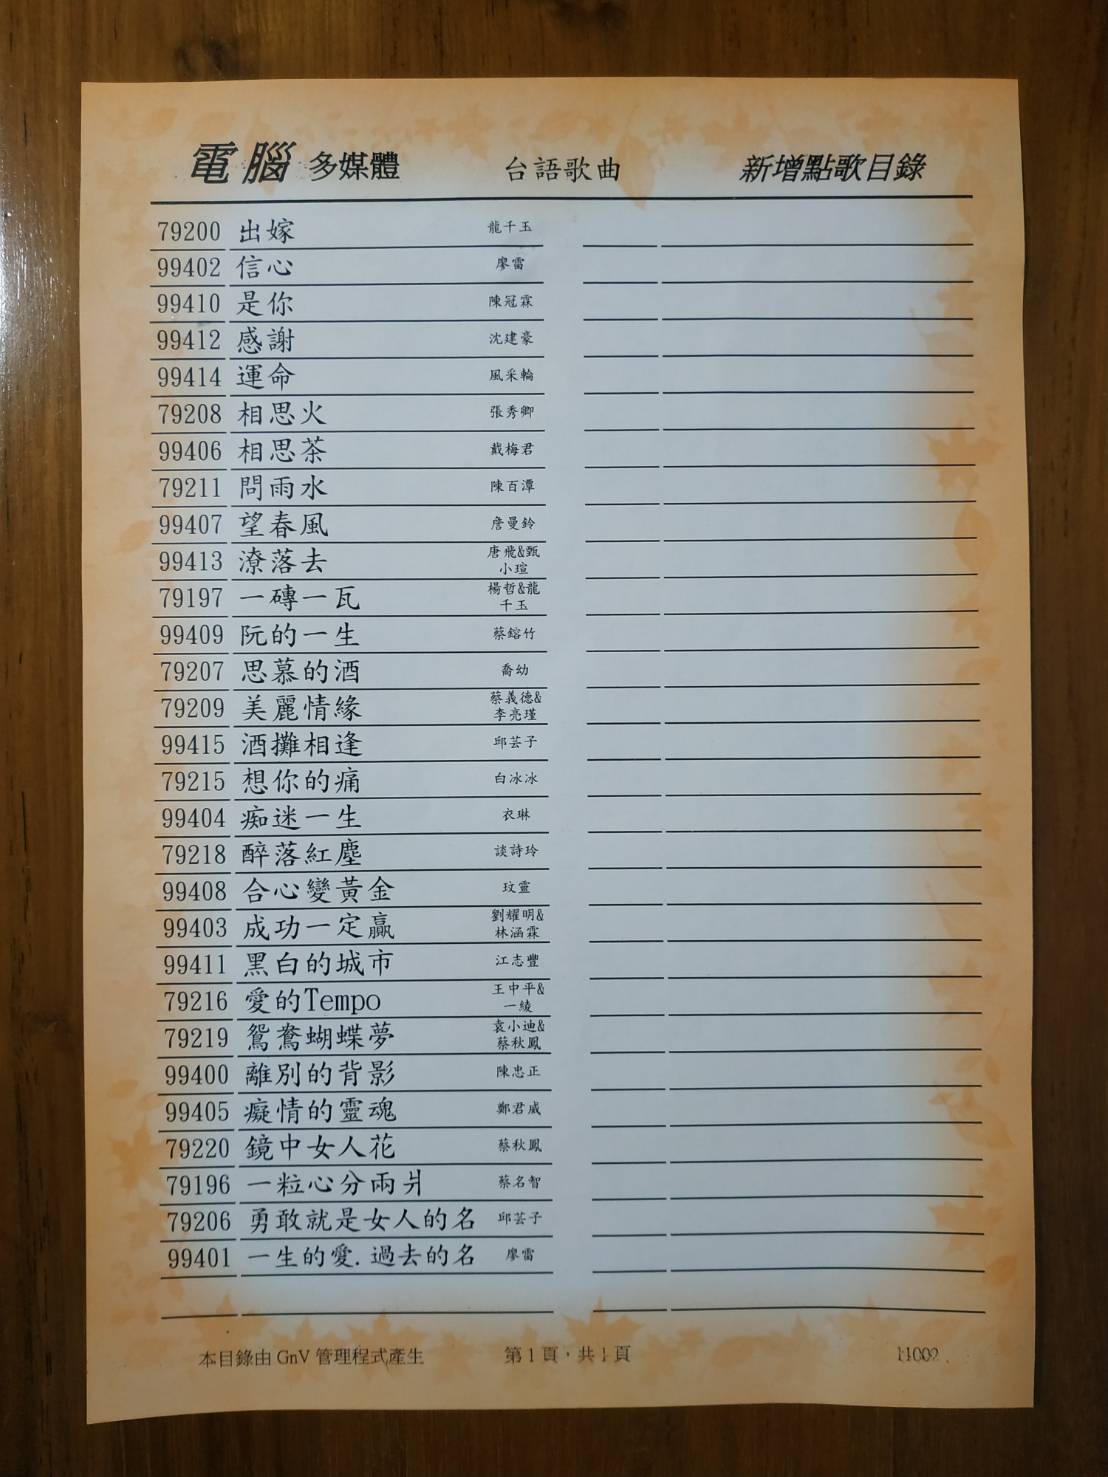 電腦 多媒體 台語歌曲 新增點歌目錄
79200 出嫁 龍千玉
99402 信心 廖雷
99410 是你 陳冠霖
99412 感謝 沈建豪
99414 運命 風采輪
79208 相思火 張秀卿
99406 相思茶 戴梅君
79211 問雨水 陳百潭
99407 望春風 詹曼鈴
99413 潦落去 唐飛&甄
小瑄
79197 一磚一瓦 楊哲&龍
千玉
99409 阮的一生 蔡鎔竹
79207 思慕的酒 喬幼
79209 美麗情緣 蔡義德&
李亮瑾
99415 酒攤相逢 邱芸子
79215 想你的痛 白冰冰
99404 痴迷一生 衣琳
79218 醉落紅塵 談詩玲
99408 合心變黃金 玟靈
99403 成功一定贏 劉耀明&
林涵霖
99411 黑白的城市 江志豐
79216 愛的Tempo 王中平&
一綾
79219 鴛鴦蝴蝶夢 袁小迪&
蔡秋鳳
99400 離別的背影 陳忠正
99405 癡情的靈魂 鄭君威
79220 鏡中女人花 蔡秋鳳
79196 一粒心分兩爿 蔡名智
79206 勇敢就是女人的名 邱芸子
99401 一生的愛.過去的名 廖雷
本目錄由 GnV 管理程式產生 第1頁，共1頁 11002